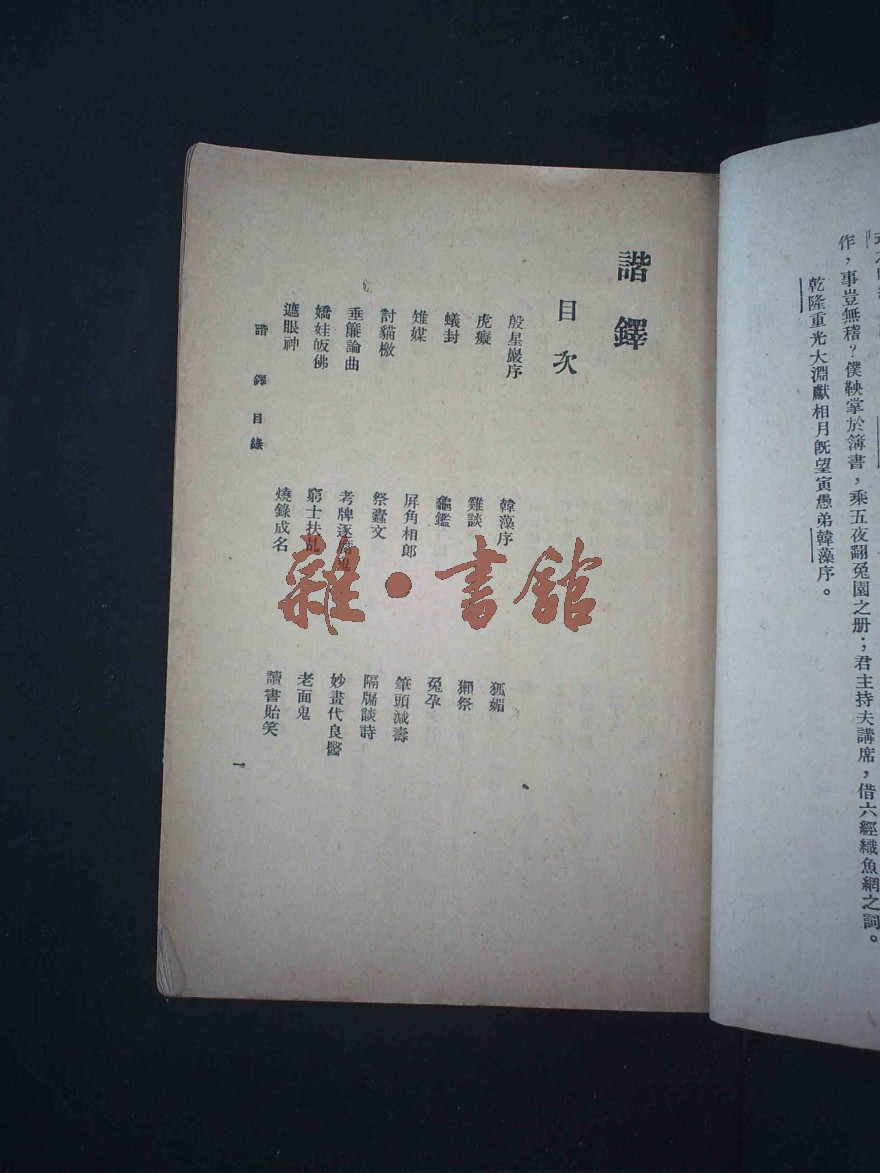 作，事豈無稽？僕鞅掌於簿書，乘五夜翻兔園之册；君主持夫講席，借六經織魚網之詞。
乾隆重光大淵獻相月旣望寅愚弟韓藻序。
諧鐸
目次
殷星巖序
韓藻序
狐媚
虎癡
雞談
獺祭
蟻封
龜鑑
兔孕
雉媒
屏角相郎
筆頭減壽
討貓檄
祭蠹文
隔牖談詩
垂簾論曲
考牌逐鬼
妙畫代良醫
嬌娃皈佛
窮士扶乩
老面鬼
遮眼神
燒錄成名
讀書貽笑
諧鐸目錄
一
雜·書館